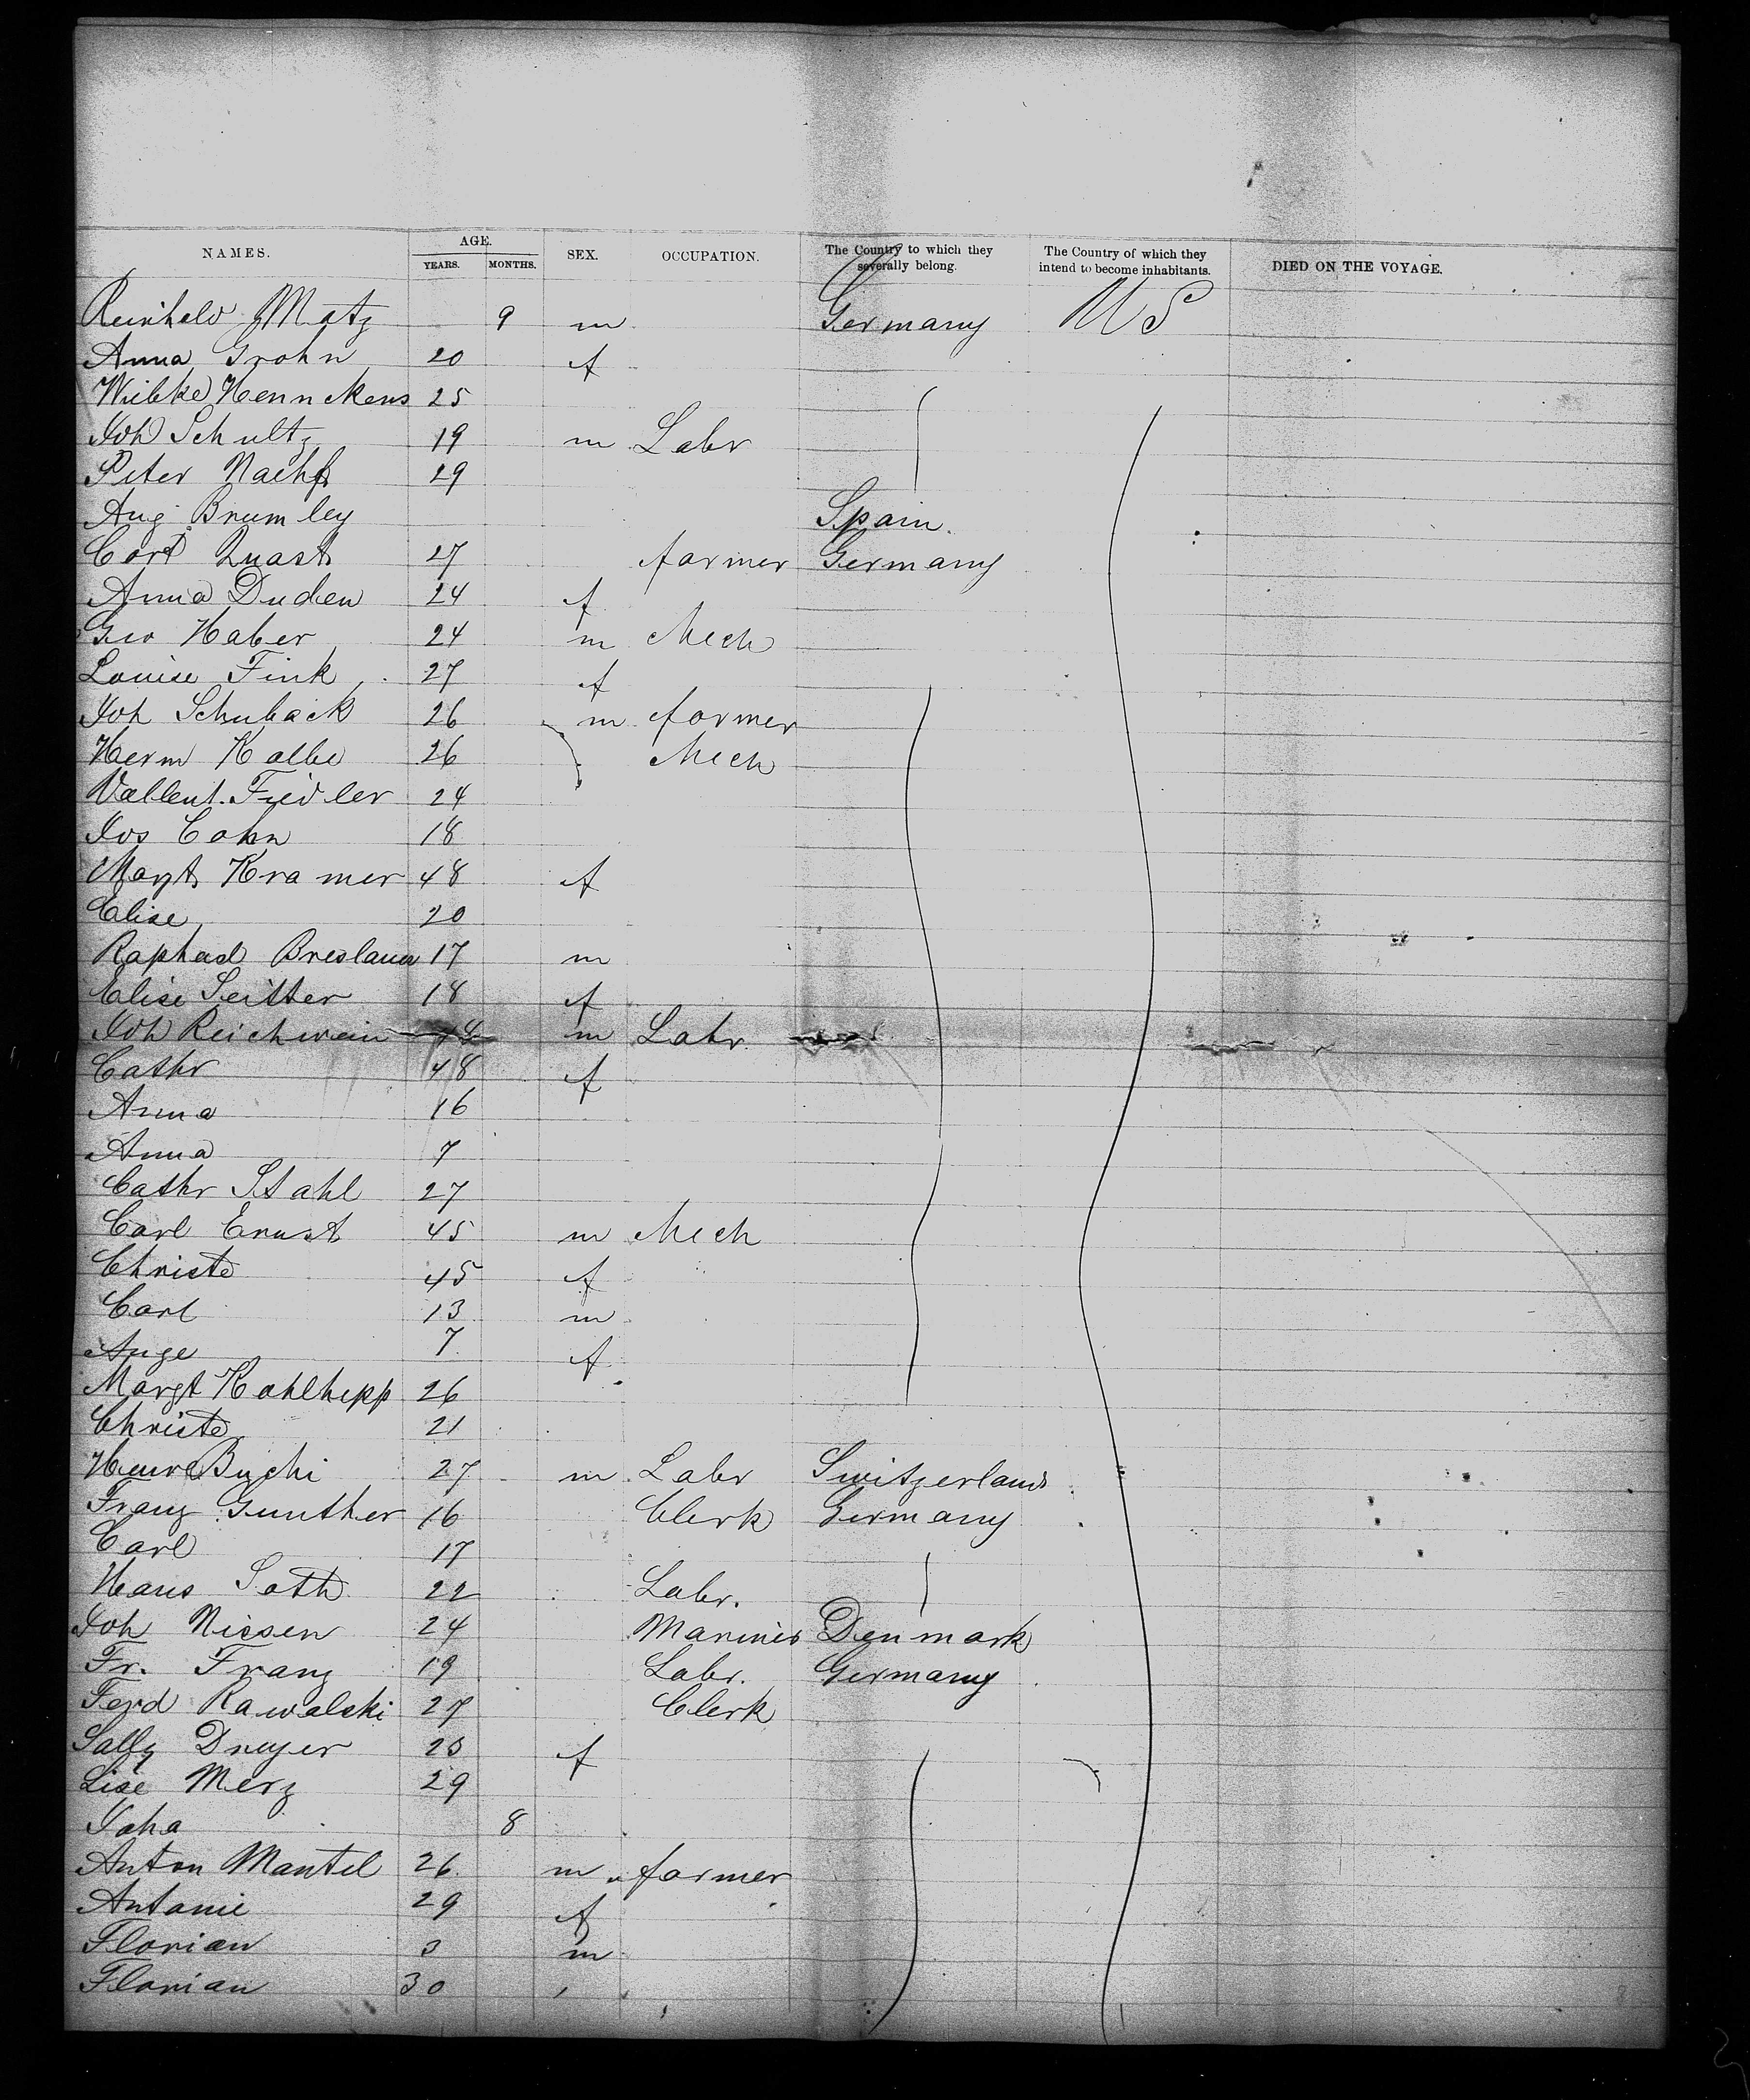 NAMES. AGE. YEARS. MONTHS. SEX. OCCUPATION. The Country to which they severally belong. The Country of which they intend to become inhabitants. DIED ON THE VOYAGE.
Reinhold Matz 9 m Germany US
Anna Grohn 20 f
Wiebke Hennckens 25
Joh Schultz 19 m Labr
Peter 29
Aug. Brumley Spain.
Cord Quast 27 farmer Germany
Anna Duden 24 f
Geo Haber 24 m Mech
Louise Fink 27 f
Joh Schuback 26 m farmer
Herm Kolbe 26 Mech
Vallent. Fiedler 24
Jos Cohn 18
Margt Kramer 48 f
Elise 20
Raphael Breslauer 17 m
Elise Seitter 18 f
Joh Reichwein m Labr.
Cathr 48 f
Anna 16
Anna 7
Cathr Stahl 27
Carl Ernst 45 m Mech
Christe 45 f
Carl 13 m
Auge 7 f
Margt Kohlhepp 26
Christe 21
Henre Buchi 27 m Labr Switzerland
Franz Gunther 16 Clerk Germany
Carl 17
Hans Soth 22 Labr.
Joh Nissen 24 Mariner Denmark
Fr. Franz 19 Labr. Germany
Ferd Rawalski 27 Clerk
Sally Dreyer 23 f
Lise Merz 29
Joha 8
Anton Mantel 26 m farmer
Antonie 29 f
Florian 3 m
Florian 30